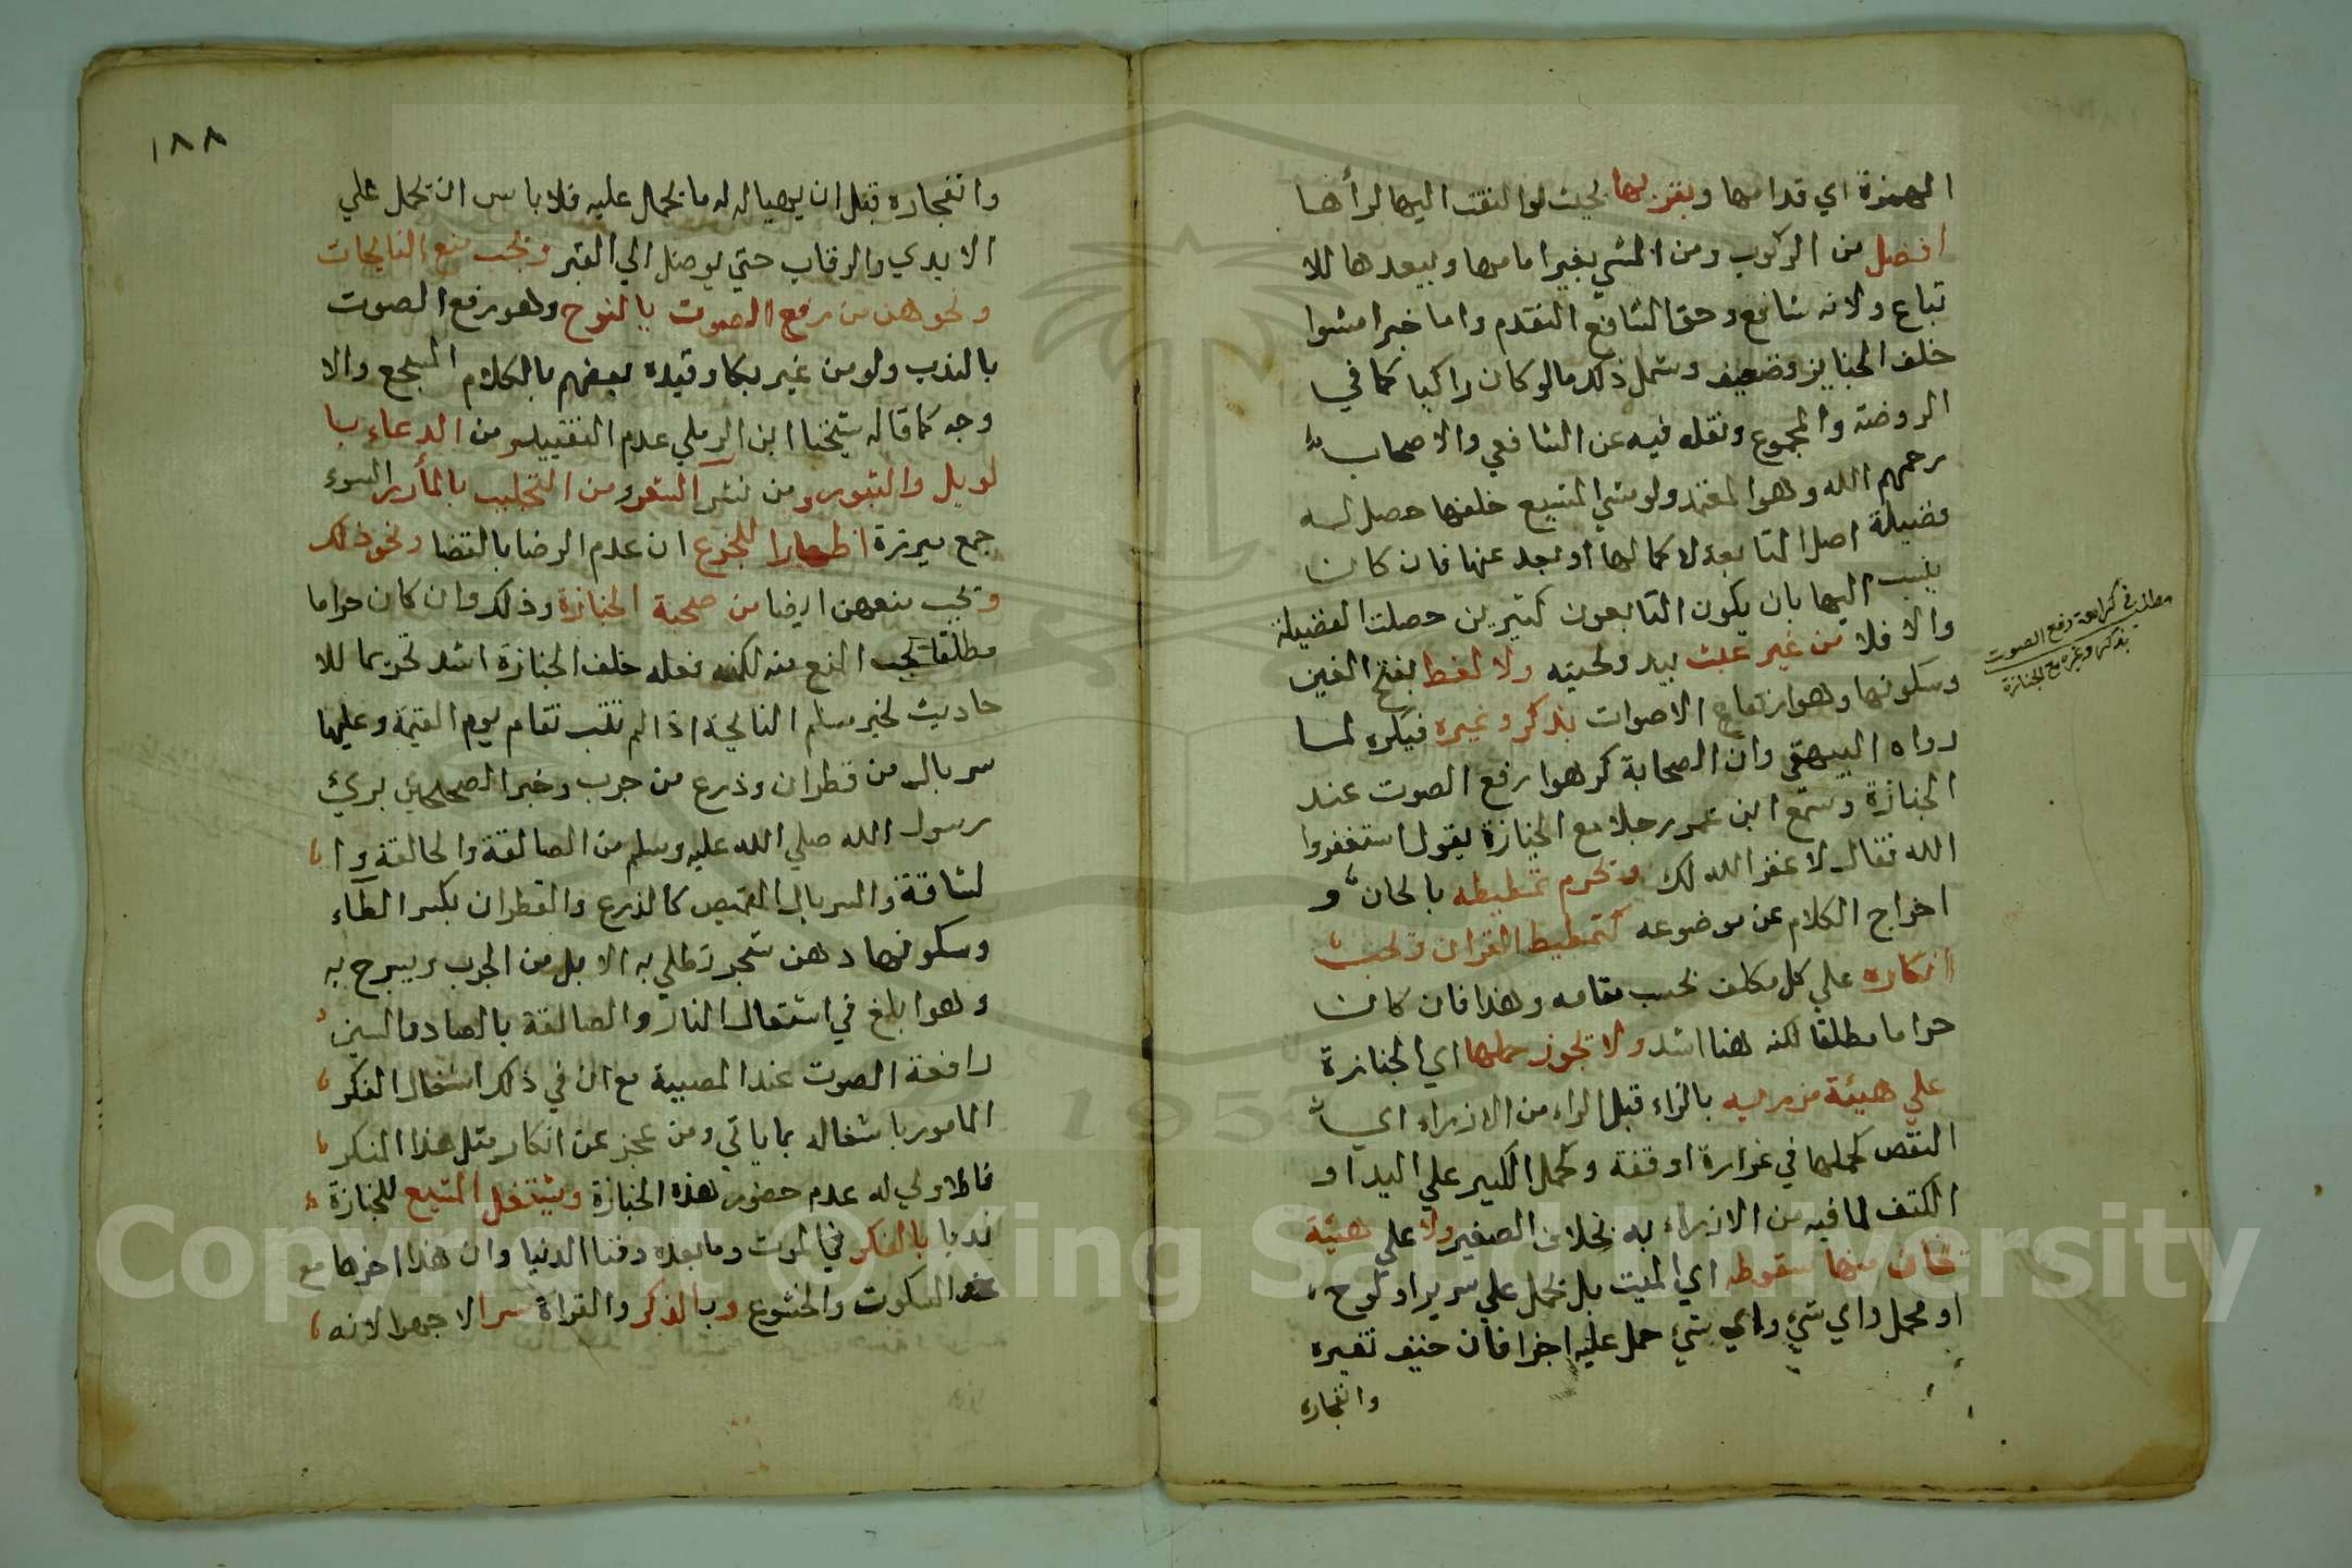 الهمزة اي قدامها وبقربها بحيث لو التفت اليها لرأها
افضل من الركوب ومن المشي بغير امامها وببعدها للا
تباع ولانه شافع وحق الشافع التقدم واما خبر امشوا
خلف الجنايز فضعيف وشمل ذلك مالو كان راكبا كما في
الروضة والمجموع ونقله فيه عن الشافعي والاصحاب
رحمهم الله وهو المعتمد ولو مشي المشيع خلفها حصل له
فضيلة اصل المتابعة لا كمالها او بعد عنها فان كان
ينسب اليها بان يكون التابعون كثيرين حصلت الفضيلة
والا فلا من غير عبث بيد ولحيته ولا لغط بفتح الغين
وسكونها وهو ارتفاع الاصوات بذكر وغيره فيكره لما
رواه البيهقي وان الصحابة كرهوا رفع الصوت عند
الجنازة وسمع ابن عمر رجلا مع الجنازة يقول استغفروا
الله فقال لا غفر الله لك وتحرم تمطيطه بالحان و
اخراج الكلام عن موضوعه كتمطيط القران وتجب
انكاره علي كل مكلف بحسب مقامه وهذا فان كان
حراما مطلقا لكنه هنا اشد ولا تجوز حملها اي الجنازة
علي هيئة مزريه بالزاء قبل الراء من الازراء اي
النقص كحملها في غرارة او قفة وكحمل الكبير علي اليد او
الكتف لما فيه من الازراء به بخلاف الصغير ولا علي هيئة
تخاف منها سقوطه اي الميت بل تحمل علي سرير او لوح
او محمل واي شيء واي شيء حمل عليه اجزا فان خيف تغيره
وانفجاره
مطلب في كراهة رفع الصوت
بذكر وغيره مع الجنازة
١٨٨
وانفجاره قبل ان يهيا له ما تحمل عليه فلا باس ان تحمل علي
الايدي والرقاب حتي يوصل الي القبر وتجب منع النايحات
ونحوهن من رفع الصوت بالنوح وهو رفع الصوت
بالندب ولو من غير بكا وقيده بعضهم بالكلام المسجع والا
وجه كما قاله شيخنا ابن الرملي عدم التقييد ومن الدعاء با
لويل والثبور ومن نشر الشعر ومن التجلبب بالمأزر السوء
جمع ميزرة اظهارا للجزع ان عدم الرضا بالقضا ونحو ذلك
وتجب منعهن ايضا من صحبة الجنازة وذلك وان كان حراما
مطلقا تجب المنع منه لكنه فعله خلف الجنازة اشد تحريما للا
حاديث لخبر مسلم النايحة اذا لم تتب تقام يوم القيمة وعليها
سربال من قطران وذرع من جرب وخبر الصحيحين بريئ
رسول الله صلي الله عليه وسلم من الصالقة والحالقة وا
لشاقة والسربال القميص كالذرع والقطران بكسر الطاء
وسكونها دهن شجر تطلي به الابل من الجرب ويسرج به
وهو ابلغ في اشتعال النار والصالقة بالصاد والسين
رافعة الصوت عند المصيبة مع ان في ذلك اشغال الفكر
المامور باشغاله بما ياتي ومن عجز عن انكار مثل هذا المنكر
فالاولي له عدم حضور هذه الجنازة ويشتغل المشيع للجنازة
ندبا بالفكر في الموت وما بعده وفنا الدنيا وان هذا اخرها مع
السكوت والخشوع وبالذكر والقراة سرا لا جهرا لانه
Copyright © King Saud University
195